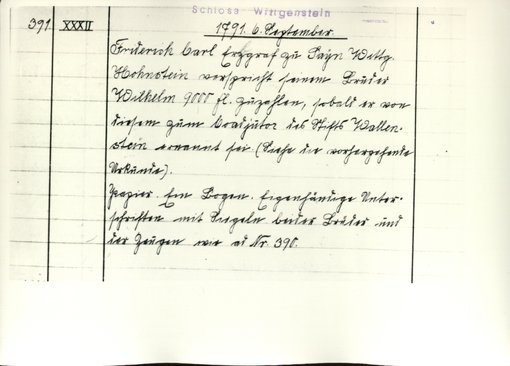 Schloss Wittgenstein
391 XXXII 1791. 6. September.
Friederich Carl Erzgraf zu Sayn Wittg.
Hohnstein verspricht seinem Bruder
Wilhelm 9000 fl. zuzahlen, sobald er von
diesem zum Coadjutor des Stifts Wallen-
stein ernannt sei (Siehe die vorhergehende
Urkunde).
Papier. Ein Bogen. Eigenhändige Unter-
schriften mit Siegeln beider Brüder und
der Zeugen wie ad Nr. 390.